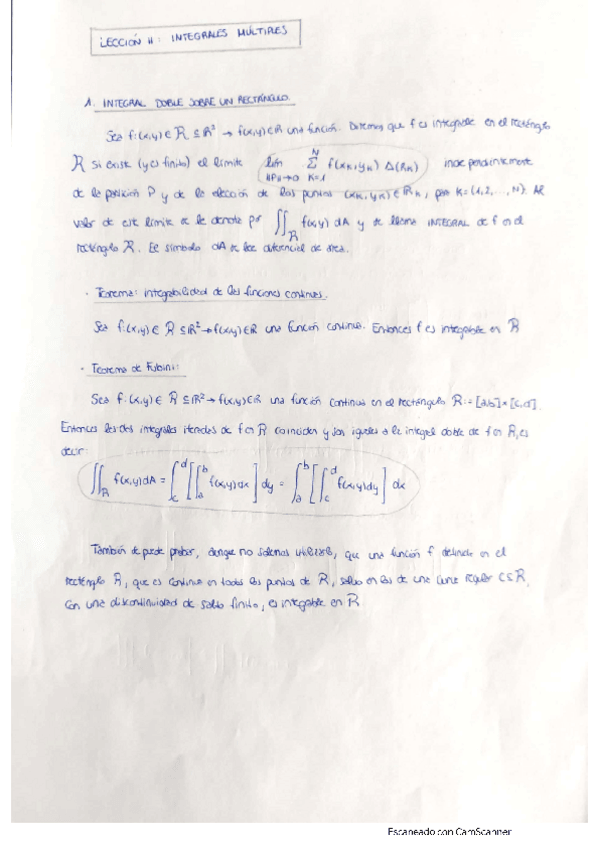 LECCIÓN 11: INTEGRALES MÚLTIPLES
1. INTEGRAL DOBLE SOBRE UN RECTÁNGULO.
Sea f: (x,y) ∈ R ⊆ ℝ² → f(x,y) ∈ ℝ una función. Diremos que f es integrable en el rectángulo
R si existe (y es finito) el límite lím ‖P‖→0 Σ K=1 N f(xK, yK) Δ(RK) independientemente
de la partición P y de la elección de los puntos (xK, yK) ∈ RK, para K=(1,2,..., N). Al
valor de este límite se le denota por ∬R f(x,y) dA y se llama INTEGRAL de f en el
rectángulo R. El símbolo dA se lee diferencial de área.
· Teorema: integrabilidad de las funciones continuas.
Sea f: (x,y) ∈ R ⊆ ℝ² → f(x,y) ∈ ℝ una función continua. Entonces f es integrable en R
· Teorema de Fubini:
Sea f: (x,y) ∈ R ⊆ ℝ² → f(x,y) ∈ ℝ una función continua en el rectángulo R:= [a,b]×[c,d].
Entonces las dos integrales iteradas de f en R coinciden y son iguales a la integral doble de f en R, es
decir:
∬R f(x,y) dA = ∫c d [∫a b f(x,y) dx] dy = ∫a b [∫c d f(x,y) dy] dx
También se puede probar, aunque no solemos utilizarlo, que una función f definida en el
rectángulo R, que es continua en todos los puntos de R, salvo en los de una curva regular C ⊆ R,
con una discontinuidad de salto finito, es integrable en R
Escaneado con CamScanner